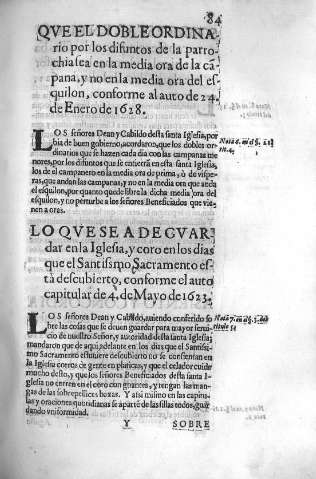 84
QVE EL DOBLE ORDINA
rio por los difuntos de la parro-
chia sea en la media ora de la cã
pana, y no en la media ora del es
quilon, conforme al auto de 24.
de Enero de 1618.
LOS señores Dean y Cabildo desta santa Iglesia, por
via de buen gobierno, acordaron, que los dobles or-
dinarios que se hazen cada dia con las campanas me
nores, por los difuntos que se entierrã en esta santa Iglesia,
los de el campanero en la media ora de prima, ò de vispe-
ras, que andan las campanas, y no en la media ora que anda
el esquilon, por quanto quede libre la dicha media ora del
esquilon, y no perturbe a los señores Beneficiados que vie-
nen a oras.
LO QVE SE A DE GVAR
dar en la Iglesia, y coro en los dias
que el Santissimo Sacramento es-
tà descubierto, conforme el auto
capitular de 4. de Mayo de 1623.
LOS señores Dean y Cabildo, auiendo conferido so
bre las cosas que se deuen guardar para mayor serui-
cio de nuestro Señor, y autoridad desta santa Iglesia;
mandaron que de aqui adelante en los dias que el Santissi-
mo Sacramento estuuiere descubierto no se consientan en
la Iglesia corros de gente en platicas, y que el celador cuide
mucho desto, y que los señores Beneficiados desta santa I-
glesia no entren en el coro con guantes, y tengan las man-
gas de las sobrepellices boxas. Y assi mismo en las capitu-
las y oraciones quotidianas se aparte de las sillas todos, guar
dando vniformidad.
Y SOBRE